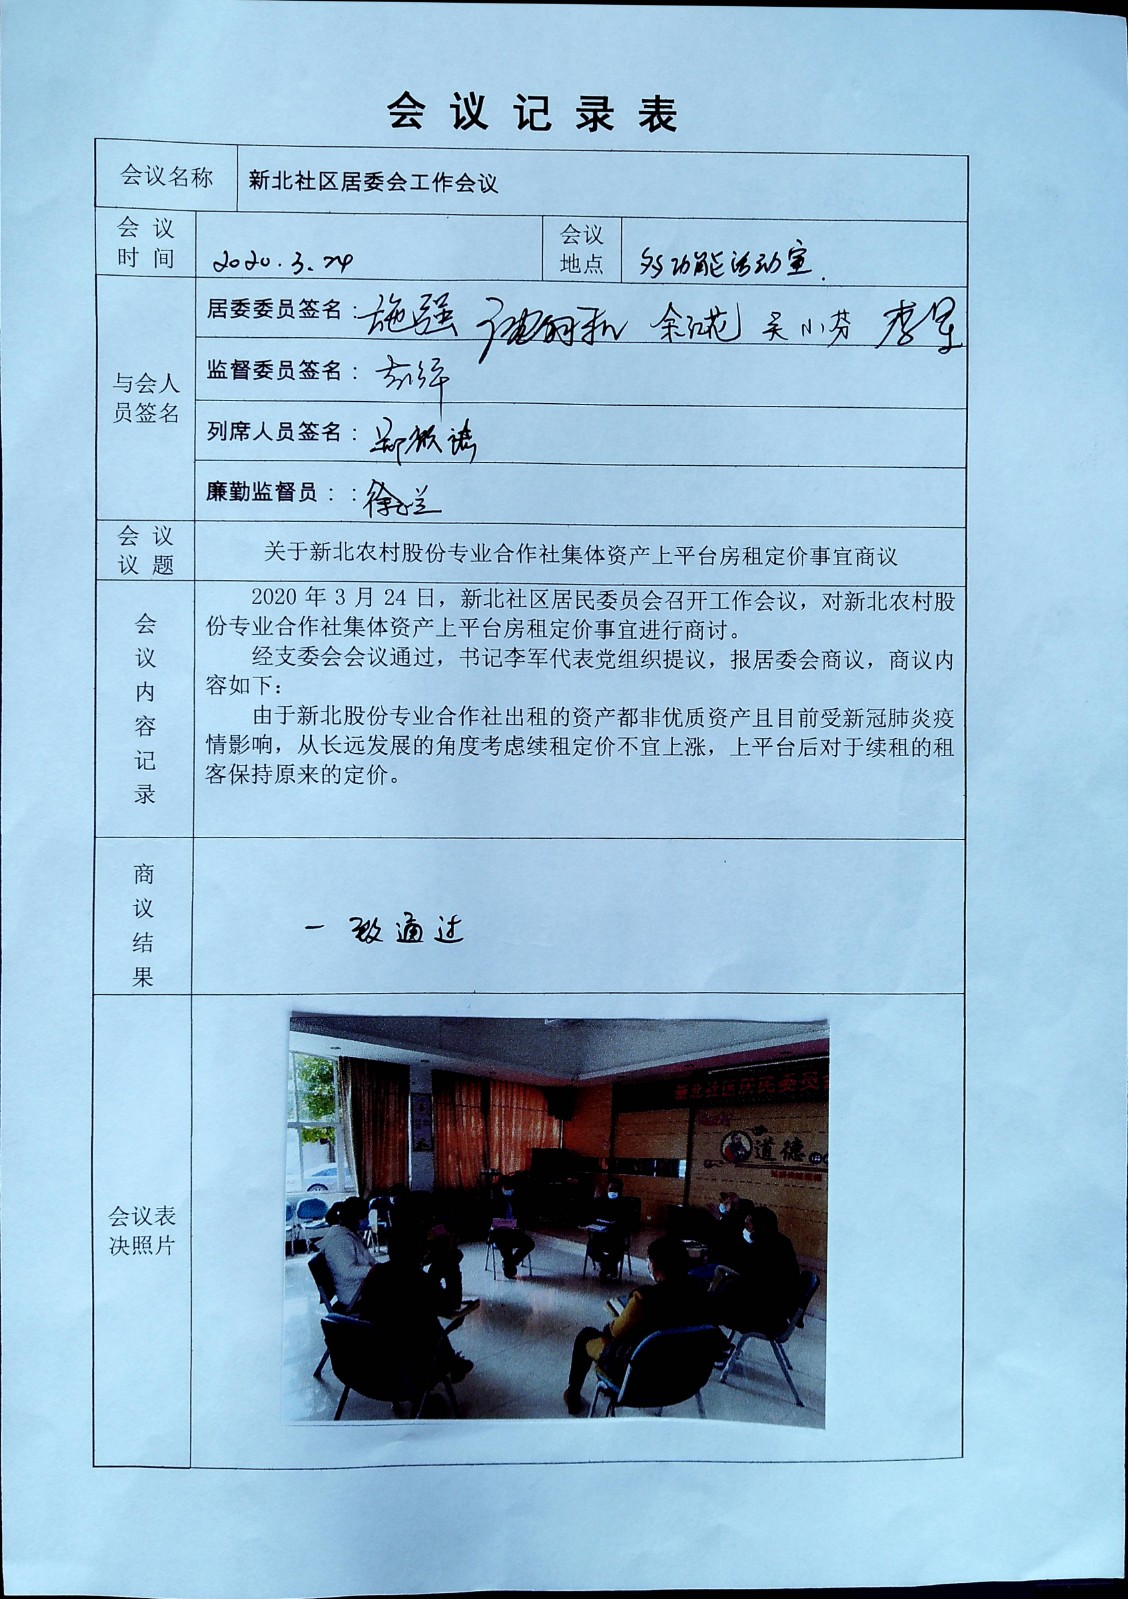 会议记录表
会议名称 新北社区居委会工作会议
会议时间 2020.3.24 会议地点 多功能活动室.
与会人员签名
居委委员签名：施强 余红花 吴小芬 李军
监督委员签名：
列席人员签名：
廉勤监督员：：徐兰
会议议题 关于新北农村股份专业合作社集体资产上平台房租定价事宜商议
会议内容记录
2020年3月24日，新北社区居民委员会召开工作会议，对新北农村股
份专业合作社集体资产上平台房租定价事宜进行商讨。
经支委会会议通过，书记李军代表党组织提议，报居委会商议，商议内
容如下：
由于新北股份专业合作社出租的资产都非优质资产且目前受新冠肺炎疫
情影响，从长远发展的角度考虑续租定价不宜上涨，上平台后对于续租的租
客保持原来的定价。
商议结果 一致通过
会议表决照片
新北社区居民委员会
道德